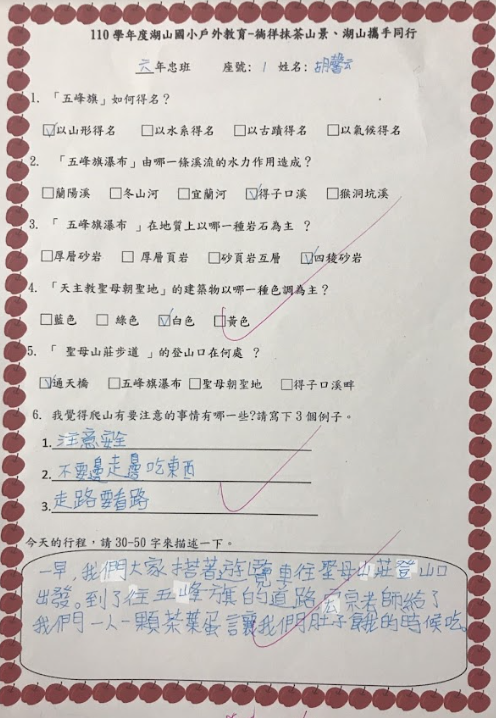 110 學年度湖山國小戶外教育-徜徉抹茶山景、湖山攜手同行
六年忠班 座號: 1 姓名: 胡馨云
1. 「五峰旗」如何得名?
☑以山形得名 □以水系得名 □以古蹟得名 □以氣候得名
2. 「五峰旗瀑布」由哪一條溪流的水力作用造成?
□蘭陽溪 □冬山河 □宜蘭河 ☑得子口溪 □猴洞坑溪
3. 「 五峰旗瀑布 」在地質上以哪一種岩石為主 ?
□厚層砂岩 □ 厚層頁岩 □砂頁岩互層 ☑四稜砂岩
4. 「天主教聖母朝聖地」的建築物以哪一種色調為主?
□藍色 □ 綠色 ☑白色 □黃色
5. 「 聖母山莊步道 」的登山口在何處 ?
☑通天橋 □五峰旗瀑布 □聖母朝聖地 □得子口溪畔
6. 我覺得爬山有要注意的事情有哪一些?請寫下 3 個例子。
1. 注意安全
2. 不要邊走邊吃東西
3. 走路要看路
今天的行程,請 30-50 字來描述一下。
一早,我們大家搭著遊覽車往聖母山莊登山口
出發。到了往五峰旗的道路,宏宗老師給了
我們一人一顆茶葉蛋讓我們肚子餓的時候吃。